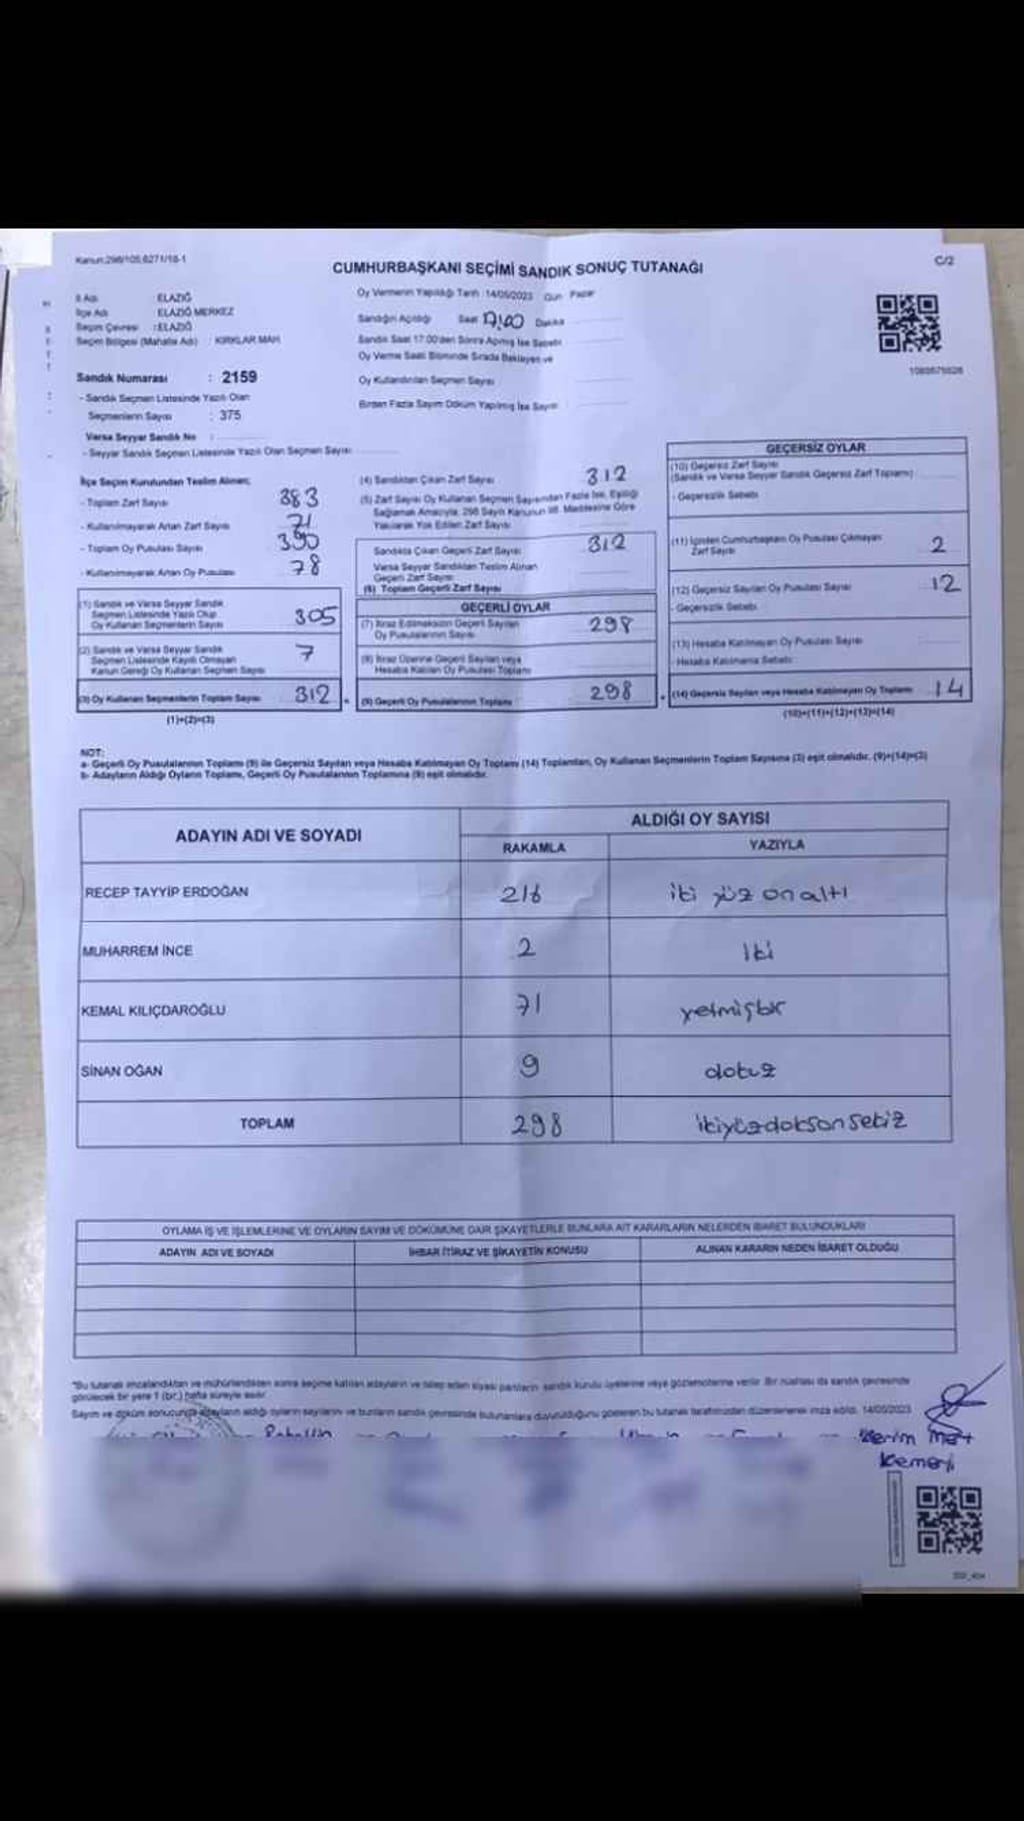 Kanun:298/105,6271/18-1
C/2
CUMHURBAŞKANI SEÇİMİ SANDIK SONUÇ TUTANAĞI
İl Adı : ELAZIĞ
İlçe Adı : ELAZIĞ MERKEZ
Seçim Çevresi : ELAZIĞ
Seçim Bölgesi (Mahalle Adı) : KIRKLAR MAH.
Sandık Numarası : 2159
- Sandık Seçmen Listesinde Yazılı Olan
Seçmenlerin Sayısı : 375
Varsa Seyyar Sandık No :
- Seyyar Sandık Seçmen Listesinde Yazılı Olan Seçmen Sayısı
Oy Vermenin Yapıldığı Tarih :14/05/2023 Gün: Pazar
Sandığın Açıldığı Saat 17:00 Dakika
Sandık Saat 17.00'den Sonra Açılmış İse Sebebi
Oy Verme Saati Bitiminde Sırada Bekleyen ve
Oy Kullandırılan Seçmen Sayısı
Birden Fazla Sayım Döküm Yapılmış İse Sayısı
İlçe Seçim Kurulundan Teslim Alınan;
- Toplam Zarf Sayısı 383
- Kullanılmayarak Artan Zarf Sayısı 71
- Toplam Oy Pusulası Sayısı 390
- Kullanılmayarak Artan Oy Pusulası 78
(1) Sandık ve Varsa Seyyar Sandık
Seçmen Listesinde Yazılı Olup
Oy Kullanan Seçmenlerin Sayısı 305
(2) Sandık ve Varsa Seyyar Sandık
Seçmen Listesinde Kayıtlı Olmayan
Kanun Gereği Oy Kullanan Seçmen Sayısı 7
(3) Oy Kullanan Seçmenlerin Toplam Sayısı 312
(1)+(2)=(3)
(4) Sandıktan Çıkan Zarf Sayısı 312
(5) Zarf Sayısı Oy Kullanan Seçmen Sayısından Fazla İse, Eşitliği
Sağlamak Amacıyla, 298 Sayılı Kanunun 98. Maddesine Göre
Yakılarak Yok Edilen Zarf Sayısı
Sandıkta Çıkan Geçerli Zarf Sayısı 312
Varsa Seyyar Sandıktan Teslim Alınan
Geçerli Zarf Sayısı
(6) Toplam Geçerli Zarf Sayısı
GEÇERLİ OYLAR
(7) İtiraz Edilmeksizin Geçerli Sayılan
Oy Pusulalarının Sayısı 298
(8) İtiraz Üzerine Geçerli Sayılan veya
Hesaba Katılan Oy Pusulası Toplamı
(9) Geçerli Oy Pusulalarının Toplamı 298
GEÇERSİZ OYLAR
(10) Geçersiz Zarf Sayısı
(Sandık ve Varsa Seyyar Sandık Geçersiz Zarf Toplamı)
- Geçersizlik Sebebi
(11) İçinden Cumhurbaşkanı Oy Pusulası Çıkmayan
Zarf Sayısı 2
(12) Geçersiz Sayılan Oy Pusulası Sayısı 12
- Geçersizlik Sebebi
(13) Hesaba Katılmayan Oy Pusulası Sayısı
- Hesaba Katılmama Sebebi
(14) Geçersiz Sayılan veya Hesaba Katılmayan Oy Toplamı 14
(10)+(11)+(12)+(13)=(14)
NOT:
a- Geçerli Oy Pusulalarının Toplamı (9) ile Geçersiz Sayılan veya Hesaba Katılmayan Oy Toplamı (14) Toplamları, Oy Kullanan Seçmenlerin Toplam Sayısına (3) eşit olmalıdır. (9)+(14)=(3)
b- Adayların Aldığı Oyların Toplamı, Geçerli Oy Pusulalarının Toplamına (9) eşit olmalıdır.
ADAYIN ADI VE SOYADI
ALDIĞI OY SAYISI
RAKAMLA YAZIYLA
RECEP TAYYİP ERDOĞAN 216 iki yüz on altı
MUHARREM İNCE 2 iki
KEMAL KILIÇDAROĞLU 71 yetmişbir
SİNAN OĞAN 9 dokuz
TOPLAM 298 ikiyüzdoksansekiz
OYLAMA İŞ VE İŞLEMLERİNE VE OYLARIN SAYIM VE DÖKÜMÜNE DAİR ŞİKAYETLERLE BUNLARA AİT KARARLARIN NELERDEN İBARET BULUNDUKLARI
ADAYIN ADI VE SOYADI İHBAR İTİRAZ VE ŞİKAYETİN KONUSU ALINAN KARARIN NEDEN İBARET OLDUĞU
*Bu tutanak imzalandıktan ve mühürlendikten sonra seçime katılan adayların ve talep eden siyasi partilerin sandık kurulu üyelerine veya gözlemcilerine verilir. Bir nüshası da sandık çevresinde
görülecek bir yere 1 (bir) hafta süreyle asılır.
Sayım ve döküm sonucunda adayların aldığı oyların sayılarını ve bunların sandık çevresinde bulunanlara duyurulduğunu gösteren bu tutanak tarafımızdan düzenlenerek imza edildi. 14/05/2023